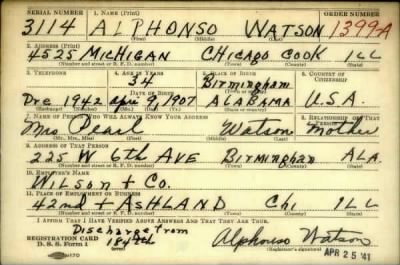 SERIAL NUMBER 1. NAME (Print) ORDER NUMBER
3114 ALPHONSO WATSON 1399-A
(First) (Middle) (Last)
2. ADDRESS (Print)
4525 MICHIGAN CHICAGO COOK ILL
(Number and street or R. F. D. number) (Town) (County) (State)
3. TELEPHONE 4. AGE IN YEARS 5. PLACE OF BIRTH 6. COUNTRY OF CITIZENSHIP
34 Birmingham
DATE OF BIRTH
Dec 1942 April 9, 1907 ALABAMA U.S.A.
(Exchange) (Number) (Mo.) (Day) (Yr.) (State or country)
7. NAME OF PERSON WHO WILL ALWAYS KNOW YOUR ADDRESS 8. RELATIONSHIP OF THAT PERSON
Mrs Pearl Watson Mother
(Mr., Mrs., Miss) (First) (Middle) (Last)
9. ADDRESS OF THAT PERSON
225 W 6th AVE Birmingham ALA.
(Number and street or R. F. D. number) (Town) (County) (State)
10. EMPLOYER'S NAME
Wilson + Co.
11. PLACE OF EMPLOYMENT OR BUSINESS
42nd + ASHLAND Chi ILL
(Number and street or R. F. D. number) (Town) (County) (State)
I AFFIRM THAT I HAVE VERIFIED ABOVE ANSWERS AND THAT THEY ARE TRUE.
Discharge from
REGISTRATION CARD
D. S. S. Form 1
Alphonso Watson
(Registrant's signature)
APR 25 '41